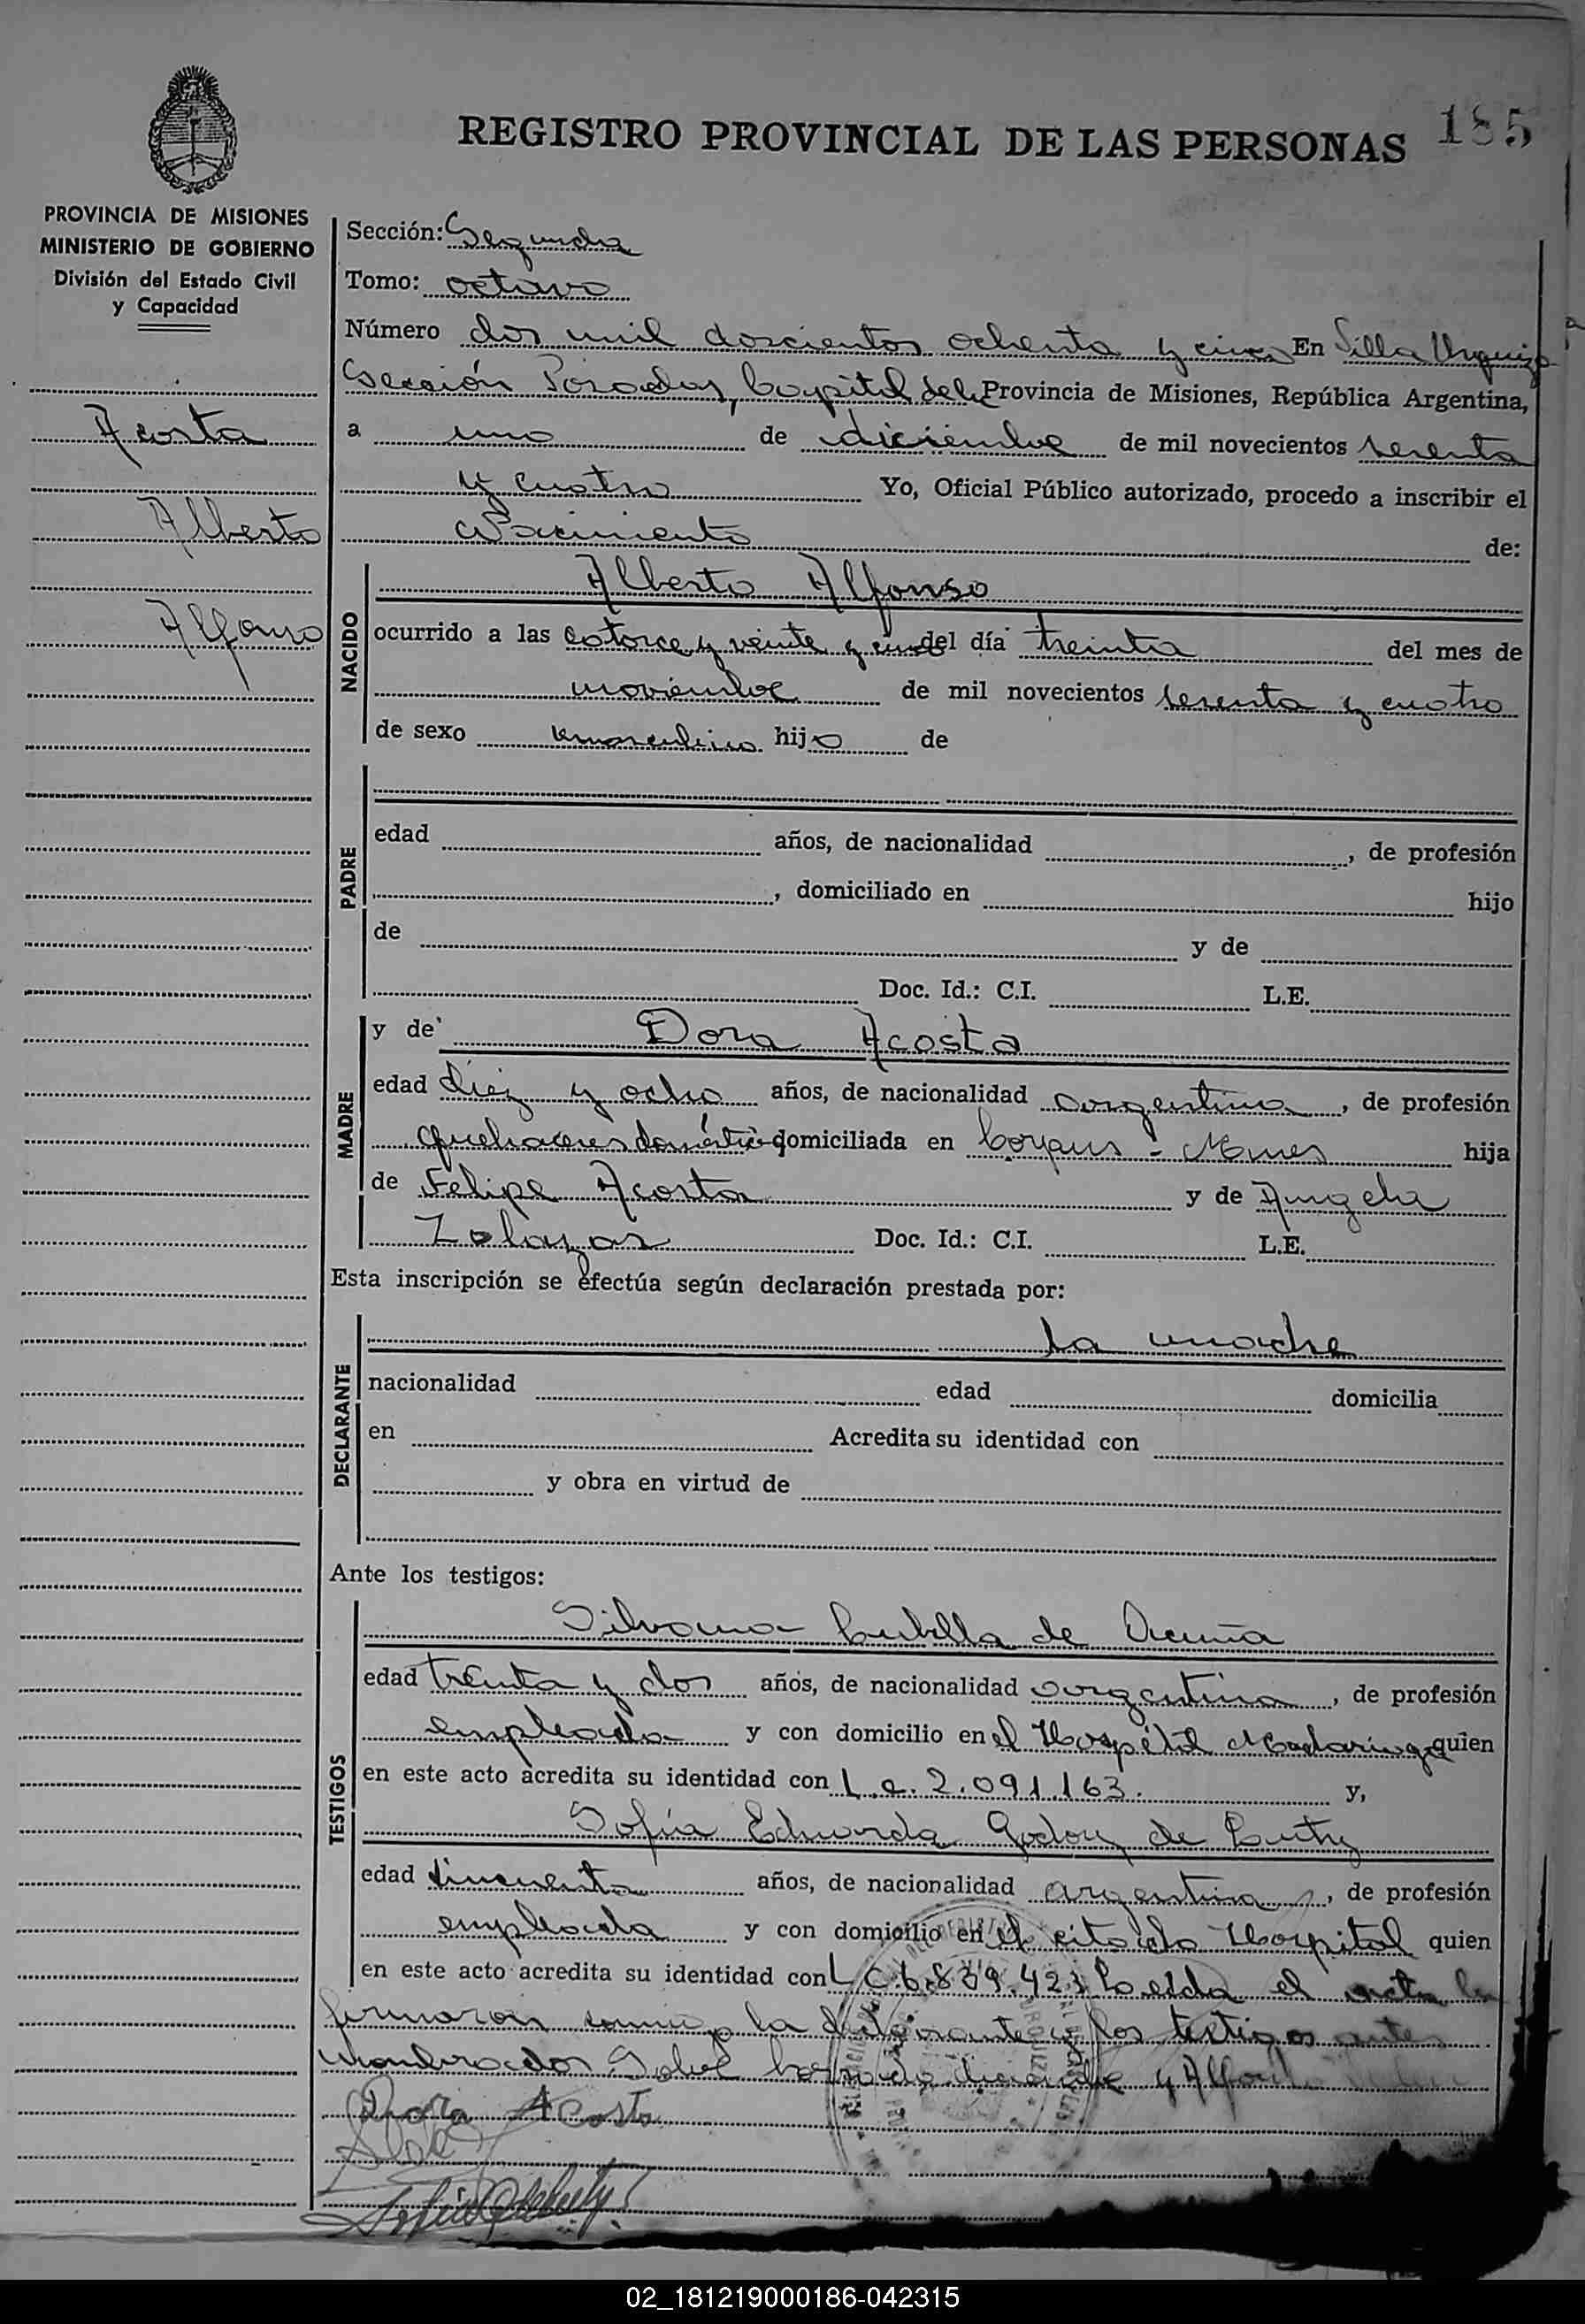 185
REGISTRO PROVINCIAL DE LAS PERSONAS
PROVINCIA DE MISIONES
MINISTERIO DE GOBIERNO
División del Estado Civil
y Capacidad
Acosta
Alberto
Alfonso
Sección: Segunda
Tomo: octavo
Número dos mil doscientos ochenta y cinco En Villa Urquiza
Sección Posadas, Capital de la Provincia de Misiones, República Argentina,
a uno de diciembre de mil novecientos sesenta
y cuatro Yo, Oficial Público autorizado, procedo a inscribir el
Nacimiento de:
NACIDO
Alberto Alfonso
ocurrido a las catorce y veinte y cinco del día treinta del mes de
noviembre de mil novecientos sesenta y cuatro
de sexo masculino hijo de
PADRE
edad años, de nacionalidad , de profesión
, domiciliado en hijo
de y de
Doc. Id.: C.I. L.E.
MADRE
y de Dora Acosta
edad diez y ocho años, de nacionalidad argentina, de profesión
quehaceres domésti- domiciliada en hija
de Felipe Acosta y de Angela
Doc. Id.: C.I. L.E.
Esta inscripción se efectúa según declaración prestada por:
DECLARANTE
la madre
nacionalidad edad domicilia
en Acredita su identidad con
y obra en virtud de
Ante los testigos:
TESTIGOS
Silvana Cubilla de Acuña
edad treinta y dos años, de nacionalidad argentina, de profesión
empleada y con domicilio en el Hospital Madariaga quien
en este acto acredita su identidad con L.c. 2.091.163. y,
Sofía Eduarda Godoy de
edad cincuenta años, de nacionalidad argentina, de profesión
empleada y con domicilio en el citado Hospital quien
en este acto acredita su identidad con L C 6.839.423 Leída el acta la
firmaron conmigo la declarante y los testigos antes
nombrados Sobre diciembre y
Dora Acosta
02_181219000186-042315